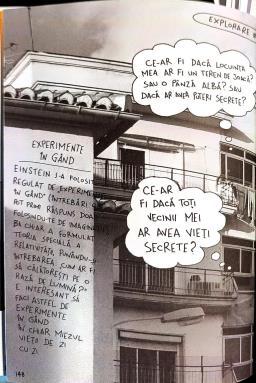 EXPLORARE #
CE-AR FI DACĂ LOCUINȚA
MEA AR FI UN TEREN DE JOACĂ?
SAU O PÂNZĂ ALBĂ? SAU
DACĂ AR AVEA PUTERI SECRETE?
CE-AR
FI DACĂ TOȚI
VECINII MEI
AR AVEA VIEȚI
SECRETE?
EXPERIMENTE
ÎN GÂND
EINSTEIN S-A FOLOSIT
REGULAT DE „EXPERIMENTE
ÎN GÂND" (ÎNTREBĂRI C
POT PRIMI RĂSPUNS DOA
FOLOSINDU-TE DE IMAGINAȚIE
BA CHIAR A FORMULAT
TEORIA SPECIALĂ A
RELATIVITĂȚII PUNÂNDU-Ș
ÎNTREBAREA „CUM AR FI
SĂ CĂLĂTOREȘTI PE O
RAZĂ DE LUMINĂ?"
E INTERESANT SĂ
FACI ASTFEL DE
EXPERIMENTE
ÎN GÂND
ÎN CHIAR MIEZUL
VIEȚII DE ZI
CU ZI
148